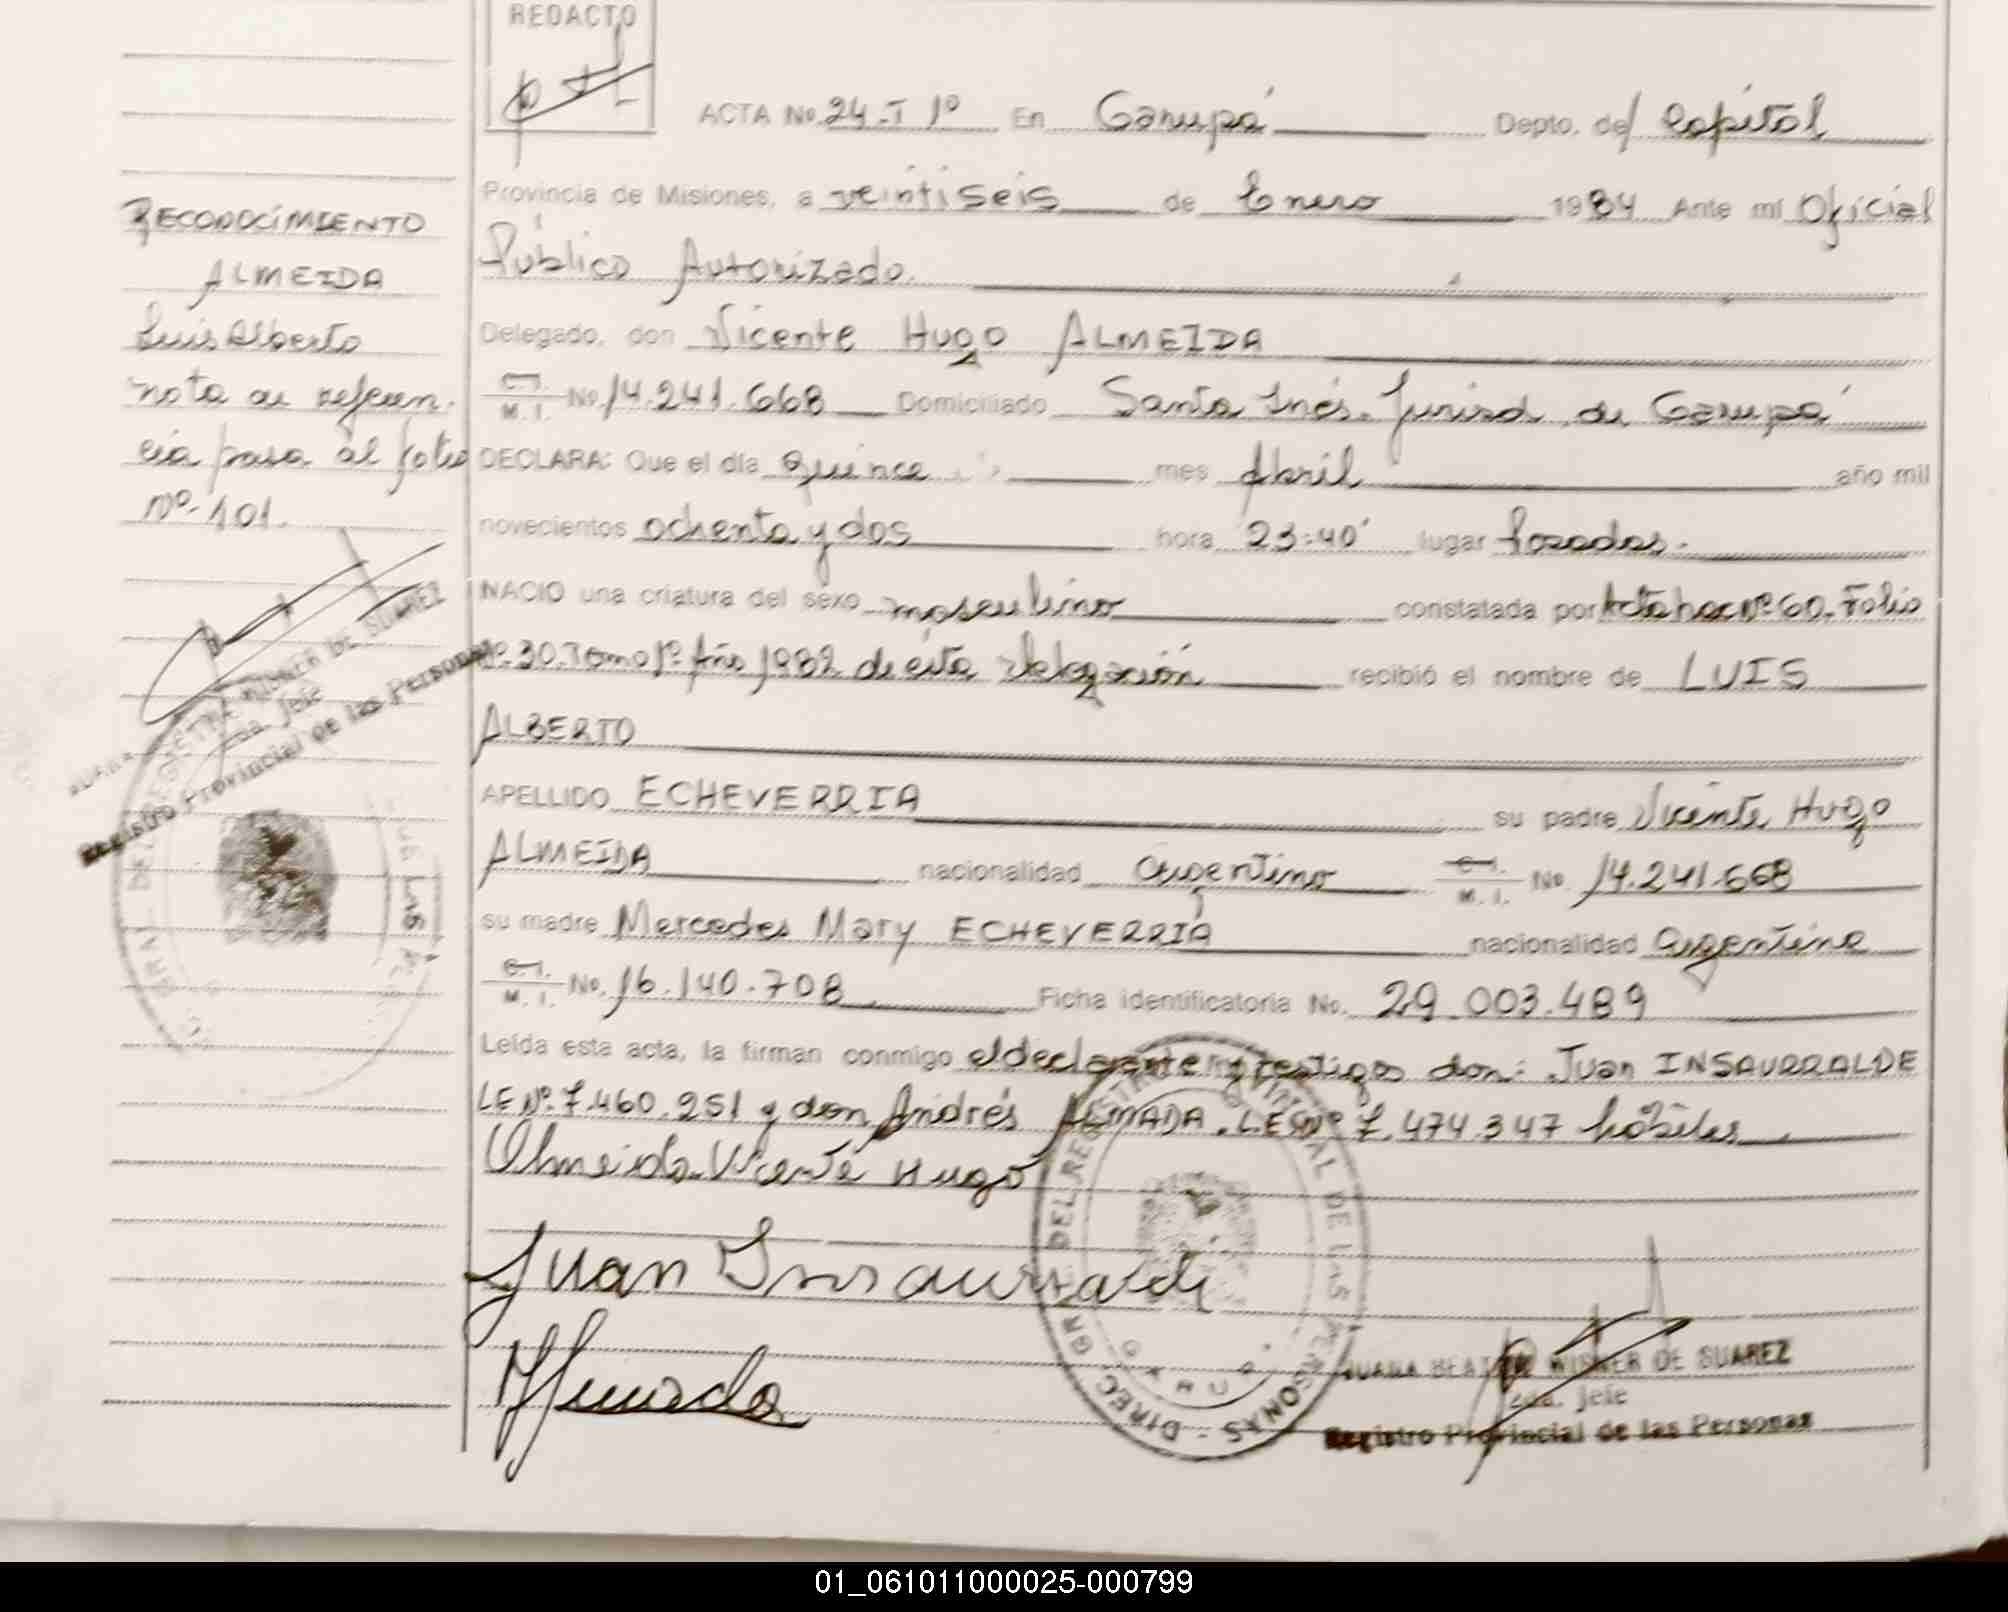 REDACTO
ACTA No. 24. T 1º En Garupá Depto. de/ Capital
Provincia de Misiones, a veintiseis de Enero 1984 Ante mí Oficial
Público Autorizado.
Delegado, don Vicente Hugo ALMEIDA
C.I. M.I. No. 14.241.668 Domiciliado Santa Inés. Jurisd. de Garupá
DECLARA: Que el día Quince mes Abril año mil
novecientos ochenta y dos hora 23:40' lugar Posadas.
NACIO una criatura del sexo masculino constatada por Acta Nac Nº 60. Folio
Nº 30. Tomo 1º Año 1982 de esta Delegación recibió el nombre de LUIS
ALBERTO
APELLIDO ECHEVERRIA su padre Vicente Hugo
ALMEIDA nacionalidad argentino C.I. M.I. No. 14.241.668
su madre Mercedes Mary ECHEVERRIA nacionalidad argentina
C.I. M.I. No. 16.140.708 Ficha identificatoria No. 29.003.489
Leída esta acta, la firman conmigo el declarante y testigos don: Juan INSAURRALDE
LE Nº 7.460.251 y don Andrés ALMADA. LE Nº 7.474.347 hábiles
Almeida Vicente Hugo
Juan Insaurralde
Almada
DIREC. GRAL. DEL REGISTRO PROVINCIAL DE LAS PERSONAS
JUANA BEATRIZ WISNER DE SUAREZ
2da. Jefe
Registro Provincial de las Personas
RECONOCIMIENTO
ALMEIDA
Luis Alberto
nota de referen.
cia pasa al folio
Nº 101.
JUANA BEATRIZ WISNER DE SUAREZ
2da. Jefe
Registro Provincial de las Personas
01_061011000025-000799